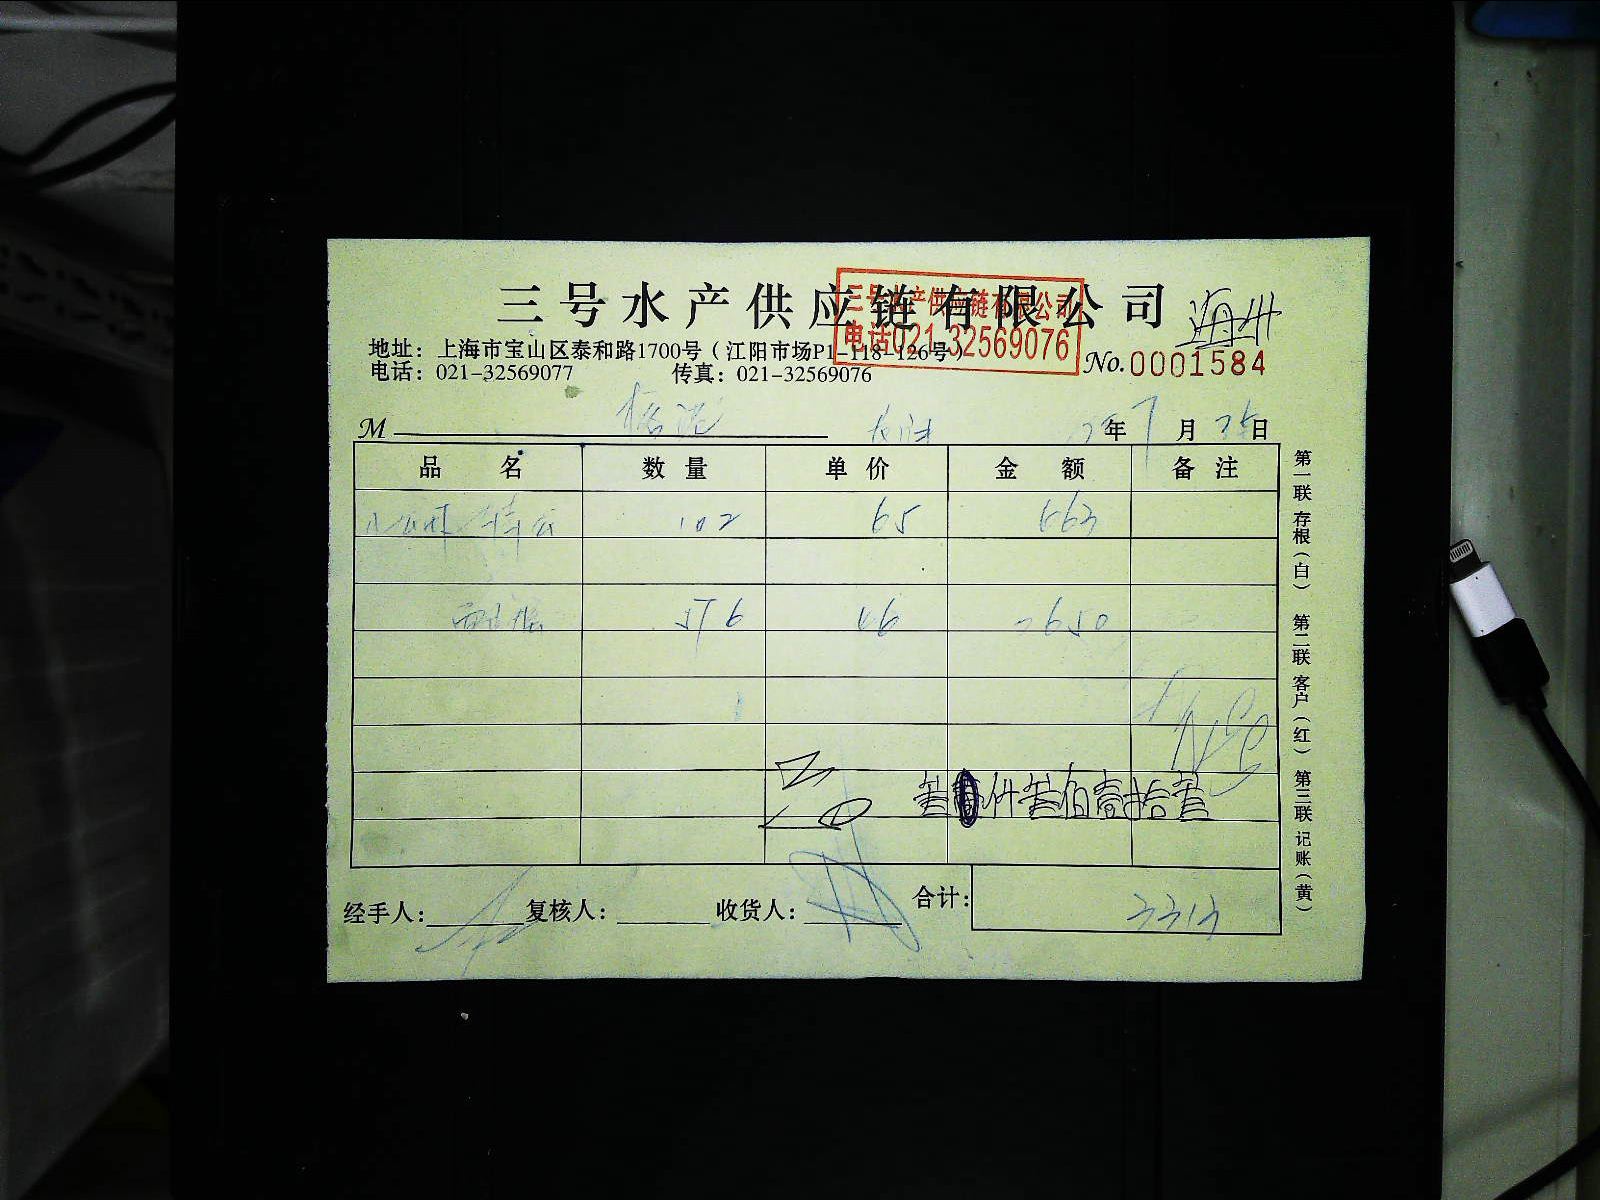 三号水产供应链有限公司
三号水产供应链有限公司
电话021-32569076
海州
地址：上海市宝山区泰和路1700号（江阳市场P1-118-126号）
电话：021-32569077 传真：021-32569076
No.0001584
M 年 7 月 25 日
品名 数量 单价 金额 备注
102 65 663
576 46 2650
叁仟叁佰壹拾叁
经手人： 复核人： 收货人： 合计： 3313
第一联 存根（白） 第二联 客户（红） 第三联 记账（黄）